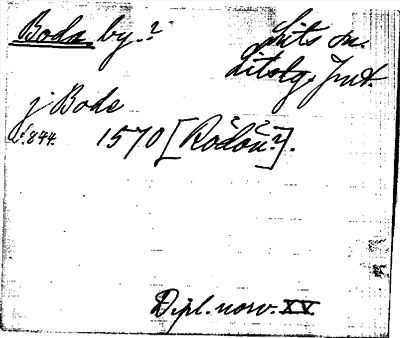 Boda by?
Lits sn.
Litslg. Jmt.
j Bode
s. 844. 1570 [Rödön?].
Dipl. norv. XV.